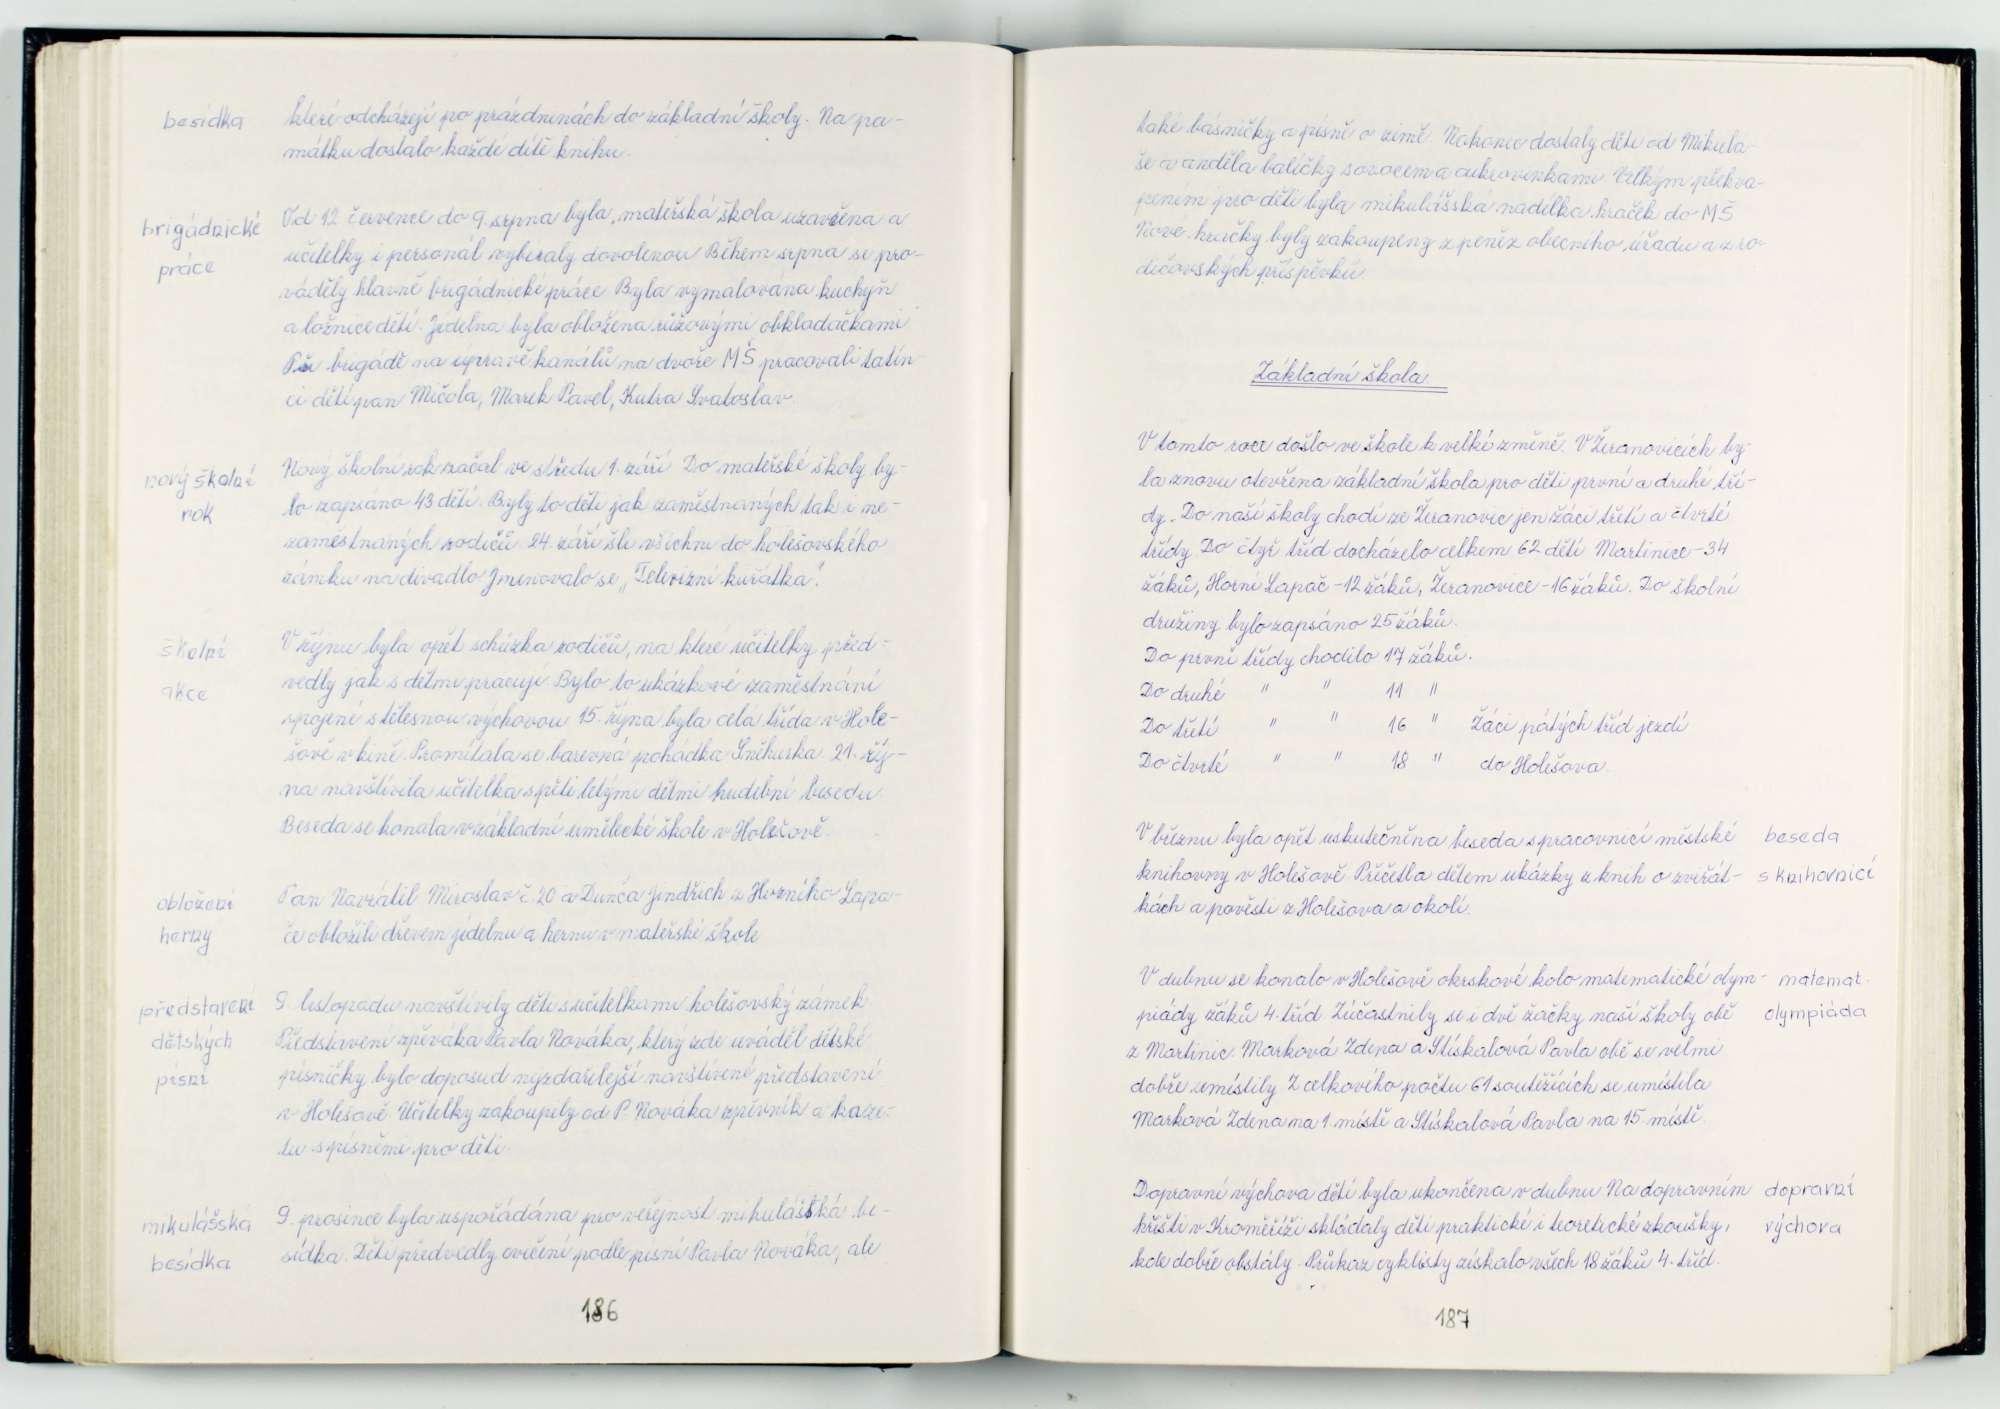 besídka
které odcházejí po prázdninách do základní školy. Na pa-
mátku dostalo každé dítě knihu.
brigádnické
práce
Od 12. července do 9. srpna byla mateřská škola uzavřena a
učitelky i personál vybíraly dovolenou. Během srpna se pro-
váděly hlavně brigádnické práce. Byla vymalována kuchyň
a ložnice dětí. Jídelna byla obložena růžovými obkladačkami.
Při brigádě na úpravě kanálů na dvoře MŠ pracovali tatín-
ci dětí pan Mičola, Marek Pavel, Kutra Svatoslav.
nový školní
rok
Nový školní rok začal ve středu 1. září. Do mateřské školy by-
lo zapsáno 43 dětí. Byly to děti jak zaměstnaných tak i ne-
zaměstnaných rodičů. 24. září šli všichni do holešovského
zámku na divadlo. Jmenovalo se „Televizní kuřátka".
školní
akce
V říjnu byla opět schůzka rodičů, na které učitelky před-
vedly jak s dětmi pracují. Bylo to ukázkové zaměstnání
spojené s tělesnou výchovou. 15. října byla celá třída v Hole-
šově v kině. Promítala se barevná pohádka Sněhurka. 21. říj-
na navštívila učitelka s pěti letými dětmi hudební besedu.
Beseda se konala v základní umělecké škole v Holešově.
obložení
herny
Pan Navrátil Miroslav č. 20 a Dunča Jindřich z Horního Lapa-
če obložili dřevem jídelnu a hernu v mateřské škole
představení
dětských
písní
9. listopadu navštívily děti s učitelkami holešovský zámek.
Představení zpěváka Pavla Nováka, který zde uváděl dětské
písničky bylo doposud nejzdařilejší navštívené představení
v Holešově. Učitelky zakoupily od P. Nováka zpěvník a kaze-
tu s písněmi pro děti.
mikulášská
besídka
9. prosince byla uspořádána pro veřejnost mikulášská be-
sídka. Děti předvedly cvičení podle písní Pavla Nováka, ale
186
také básničky a písně o zimě. Nakonec dostaly děti od Mikulá-
še a anděla balíčky s ovocem a cukrovinkami. Velkým překva-
pením pro děti byla mikulášská nadílka hraček do MŠ.
Nové hračky byly zakoupeny z peněz obecního úřadu a z ro-
dičovských příspěvků.
Základní škola
V tomto roce došlo ve škole k velké změně. V Žeranovicích by-
la znovu otevřena základní škola pro děti první a druhé tří-
dy. Do naší školy chodí ze Žeranovic jen žáci třetí a čtvrté
třídy. Do čtyř tříd docházelo celkem 62 dětí. Martinice - 34
žáků, Horní Lapač - 12 žáků, Žeranovice - 16 žáků. Do školní
družiny bylo zapsáno 25 žáků.
Do první třídy chodilo 17 žáků.
Do druhé " " 11 "
Do třetí " " 16 " Žáci pátých tříd jezdí
Do čtvrté " " 18 " do Holešova.
V březnu byla opět uskutečněna beseda s pracovnicí městské
knihovny v Holešově. Přečetla dětem ukázky z knih o zvířát-
kách a pověsti z Holešova a okolí.
beseda
s knihovnicí
V dubnu se konalo v Holešově okrskové kolo matematické olym-
piády žáků 4. tříd. Zúčastnily se i dvě žačky naší školy obě
z Martinic. Marková Zdena a Stískalová Pavla obě se velmi
dobře umístily. Z celkového počtu 61 soutěžících se umístila
Marková Zdena na 1. místě a Stískalová Pavla na 15. místě.
matemat.
olympiáda
Dopravní výchova dětí byla ukončena v dubnu. Na dopravním
hřišti v Kroměříži skládaly děti praktické i teoretické zkoušky,
kde dobře obstály. Průkaz cyklisty získalo všech 18 žáků 4. tříd.
dopravní
výchova
187